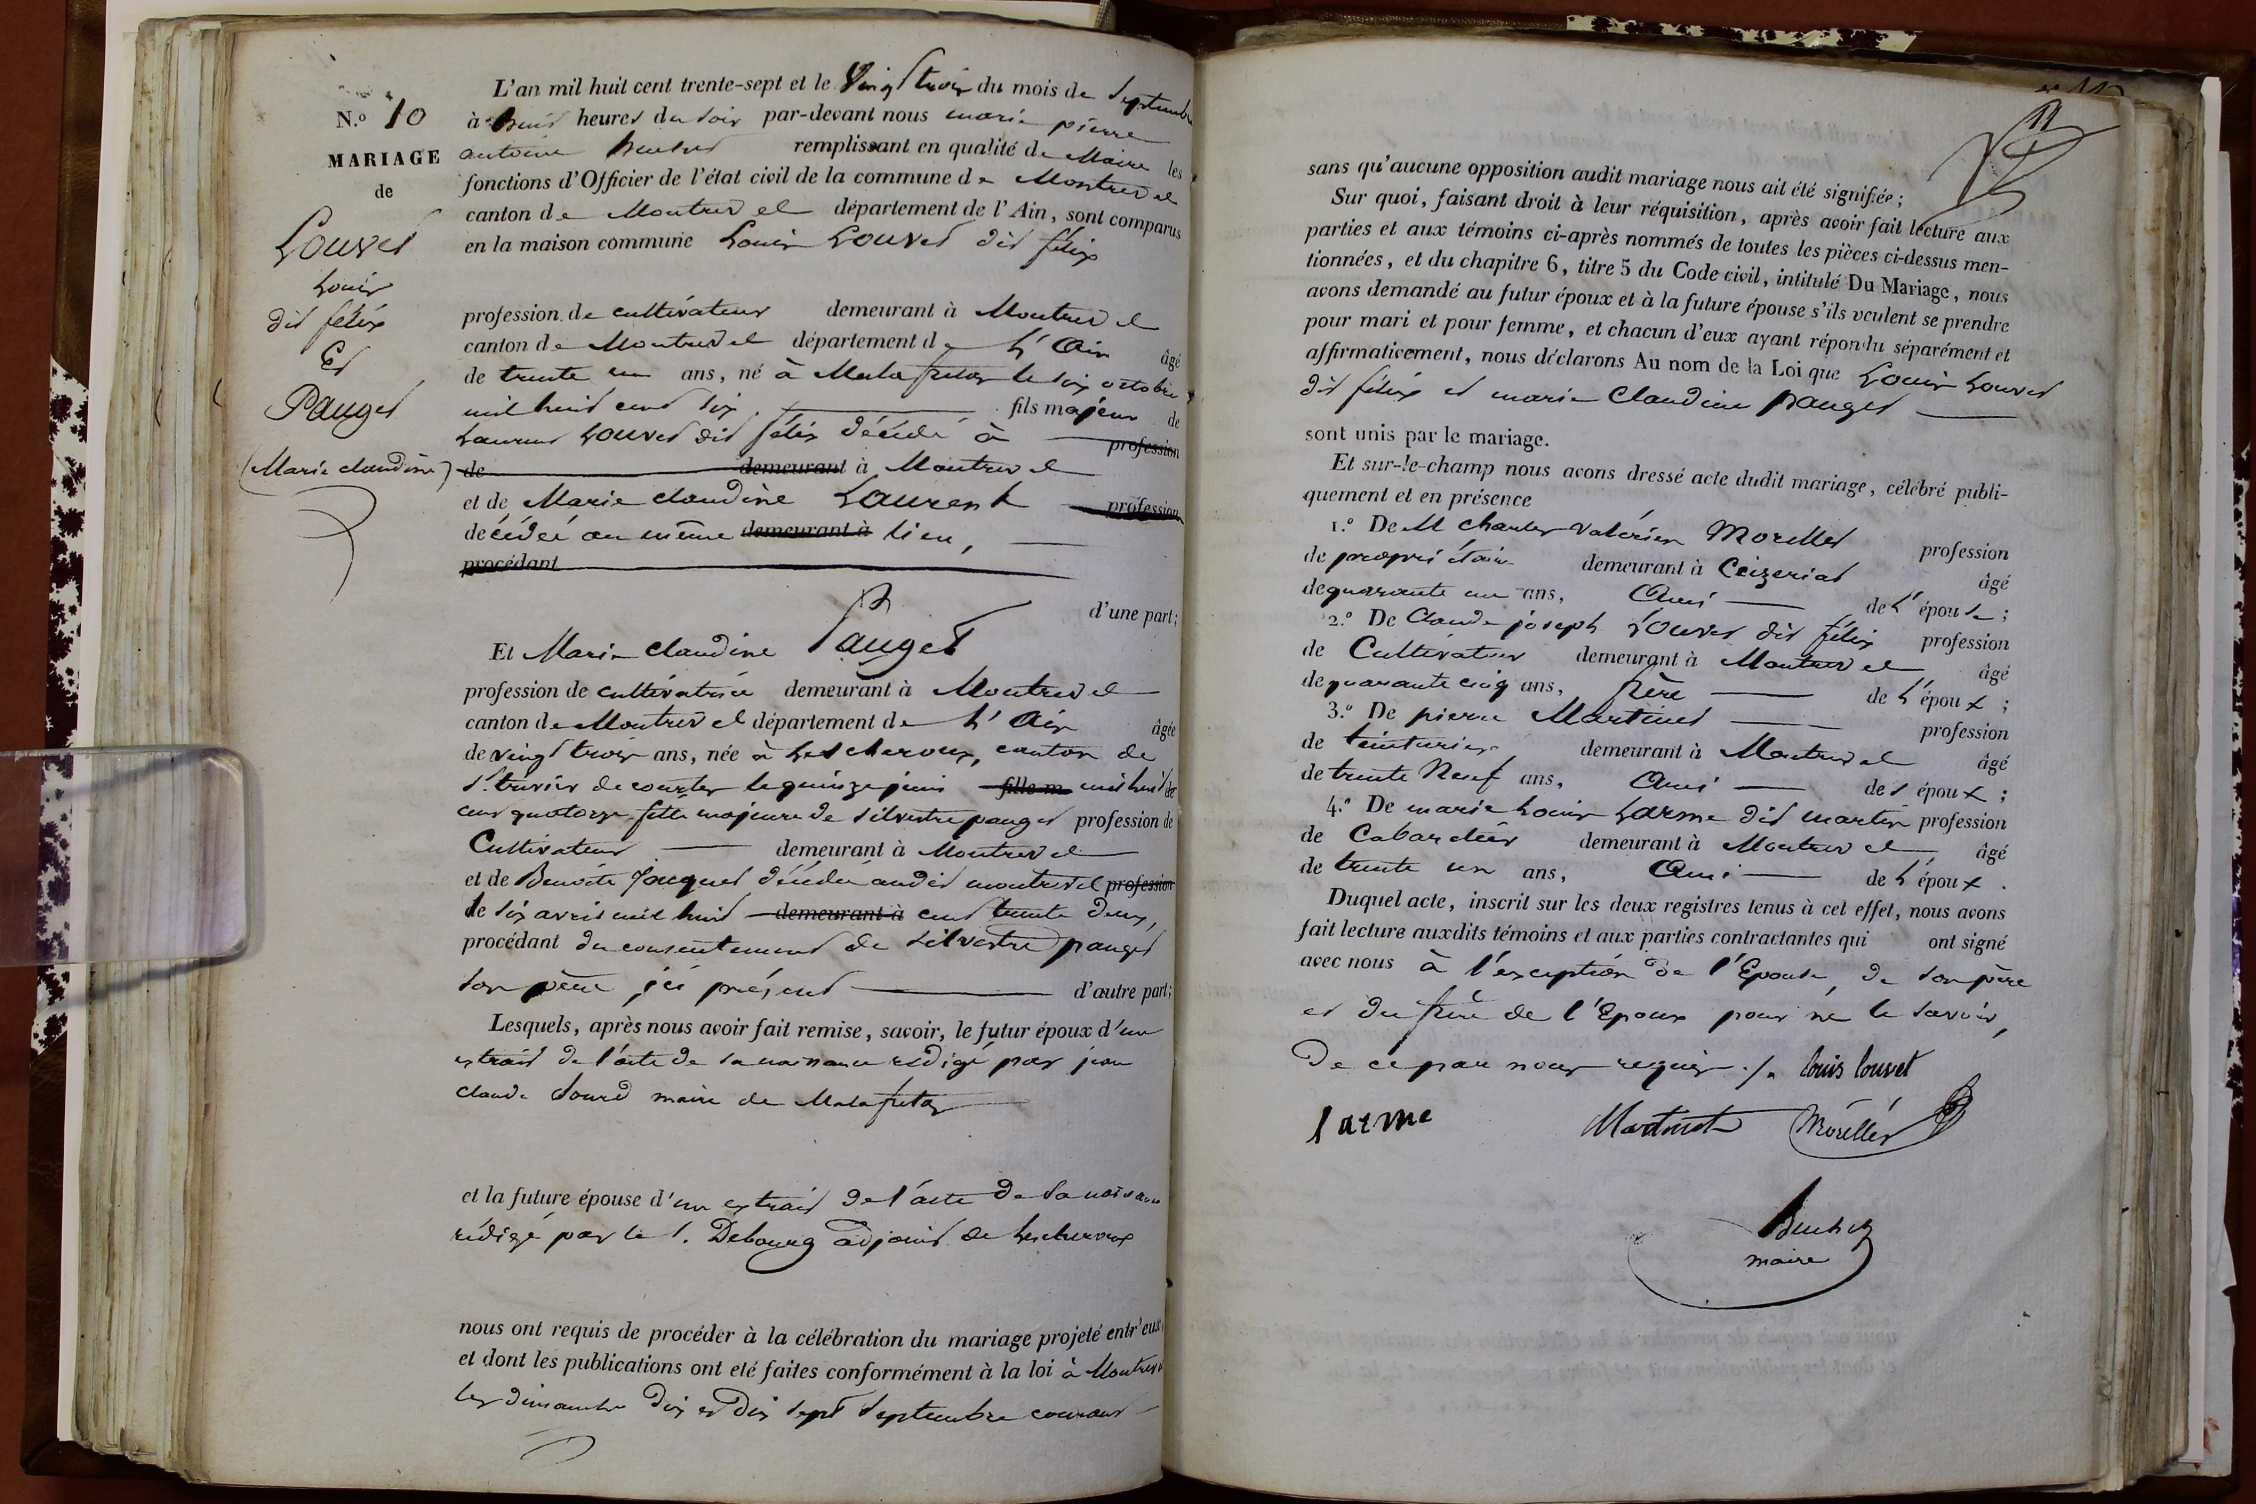 N.o 10
MARIAGE
de
Louvet
Louis
dit félix
Et
Pauget
(Marie claudine)
L'an mil huit cent trente-sept et le Vingt trois du mois de Septembre
à huit heures du soir par-devant nous marie pierre
antoine remplissant en qualité de Maire les
fonctions d'Officier de l'état civil de la commune de Montrevel
canton de Montrevel département de l'Ain, sont comparus
en la maison commune Louis Louvet dit félix
profession de cultivateur demeurant à Montrevel
canton de Montrevel département de L'Ain âgé
de trente un ans, né à Malafretaz le six octobre
mil huit cent six fils majeur de
Laurent Louvet dit félix décédé à profession
de demeurant à Montrevel
et de Marie claudine Laurent profession
décédée au même demeurant à lieu,
procédant
d'une part;
Et Marie claudine Pauget
profession de cultivatrice demeurant à Montrevel
canton de Montrevel département de L'Ain âgée
de vingt trois ans, née à Lescheroux, canton de
St. trivier de courtes le quinze juin fille m mil huit
cent quatorze fille majeure de silvestre pauget profession de
Cultivateur demeurant à Montrevel
et de Benoite Jacquet décédée audit montrevel profession
le six avril mil huit demeurant à cent trente deux,
procédant du consentement de silvestre pauget
son père ici présent d'autre part;
Lesquels, après nous avoir fait remise, savoir, le futur époux d'un
extrait de l'acte de sa naissance rédigé par jean
claude Sourd maire de Malafretaz
et la future épouse d'un extrait de l'acte de sa naissance
rédigé par le S. Debourg adjoint de Lescheroux
nous ont requis de procéder à la célébration du mariage projeté entr'eux
et dont les publications ont eté faites conformément à la loi à Montrevel
les dimanche dix et dix sept septembre courant
11
sans qu'aucune opposition audit mariage nous ait été signifiée;
Sur quoi, faisant droit à leur réquisition, après avoir fait lecture aux
parties et aux témoins ci-après nommés de toutes les pièces ci-dessus men-
tionnées, et du chapitre 6, titre 5 du Code civil, intitulé Du Mariage, nous
avons demandé au futur époux et à la future épouse s'ils veulent se prendre
pour mari et pour femme, et chacun d'eux ayant répondu séparément et
affirmativement, nous déclarons Au nom de la Loi que Louis Louvet
dit félix et marie Claudine pauget
sont unis par le mariage.
Et sur-le-champ nous avons dressé acte dudit mariage, célébré publi-
quement et en présence
1.o De M charles valérien Morellet profession
de propriétaire demeurant à Ceizeriat âgé
de quarante un ans, Ami de L'épouse;
2.o De Claude joseph Louvet dit félix profession
de Cultivateur demeurant à Montrevel âgé
de quarante cinq ans, frère de L'époux;
3.o De pierre Martinet profession
de teinturier demeurant à Montrevel âgé
de trente Neuf ans, Ami des époux;
4.o De marie Louis Larme dit martin profession
de Cabaretier demeurant à Montrevel âgé
de trente un ans, Ami de L'époux.
Duquel acte, inscrit sur les deux registres tenus à cet effet, nous avons
fait lecture auxdits témoins et aux parties contractantes qui ont signé
avec nous à l'exception de l'Epouse, de son père
et du frère de l'Epoux pour ne le savoir,
de ce par nous requis ./. louis louvet
larme Martinet Morellet
maire